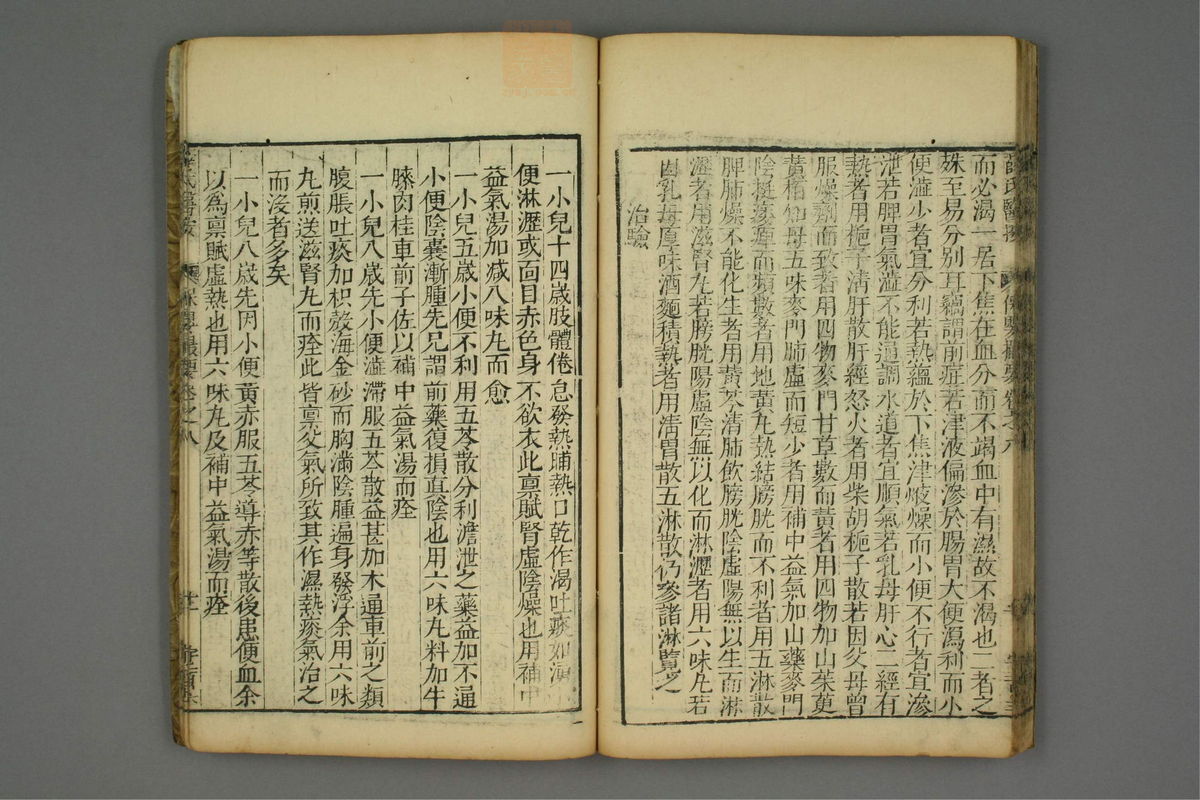 薛氏醫按 保嬰撮要 卷之八
而必渴一居下焦在血分而不渴血中有濕故不渴也二者之
姝至易分別耳竊謂前症若津液偏滲於腸胃大便瀉利而小
便澁少者宜分利若熱蘊於下焦津液燥而小便不行者宜滲
泄若脾胃氣澁不能通調水道者宜順氣若乳母肝心二經有
熱者用梔子清肝散肝經怒火者用柴胡梔子散若因父母曾
服燥劑而致者用四物麥門甘草數而黄者用四物加山茱萸
黄栢知母五味麥門肺虛而短少者用補中益氣加山藥麥門
陰挺痿痺而頻數者用地黄丸熱結膀胱而不利者用五淋散
脾肺燥不能化生者用黄芩清肺飲膀胱陰虛陽無以生而淋
瀝者用滋腎丸若膀胱陽虛陰無以化而淋瀝者用六味丸若
因乳母厚味酒麵積熱者用清胃散五淋散仍參諸淋覽之
治驗
一小兒十四歲肢體倦怠發熱晡熱口乾作渴吐痰如湧
便淋瀝或面目赤色身不欲衣此禀賦腎虛陰燥也用補中
益氣湯加减八味丸而愈
一小兒五歲小便不利用五苓散分利澹泄之藥益加不通
小便陰囊漸腫先兄謂前藥復損真陰也用六味丸料加牛
膝肉桂車前子佐以補中益氣湯而痊
一小兒八歲先小便澁滯服五苓散益甚加木通車前之類
腹脹吐痰加枳殻海金砂而胸滿陰腫遍身發浮余用六味
丸煎送滋腎丸而痊此皆禀父氣所致其作濕熱痰氣治之
而没者多矣
一小兒八歲先因小便黄赤服五苓導赤等散後患便血余
以爲禀賦虛熱也用六味丸及補中益氣湯而痊
薛氏醫按 保嬰撮要卷之八